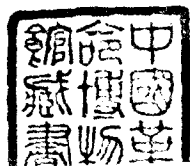 中國革
命博物
館藏書